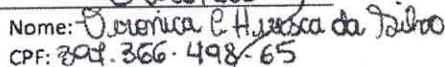 Nome: Veronica C Huesca da Silva
CPF: 397.366.498-65